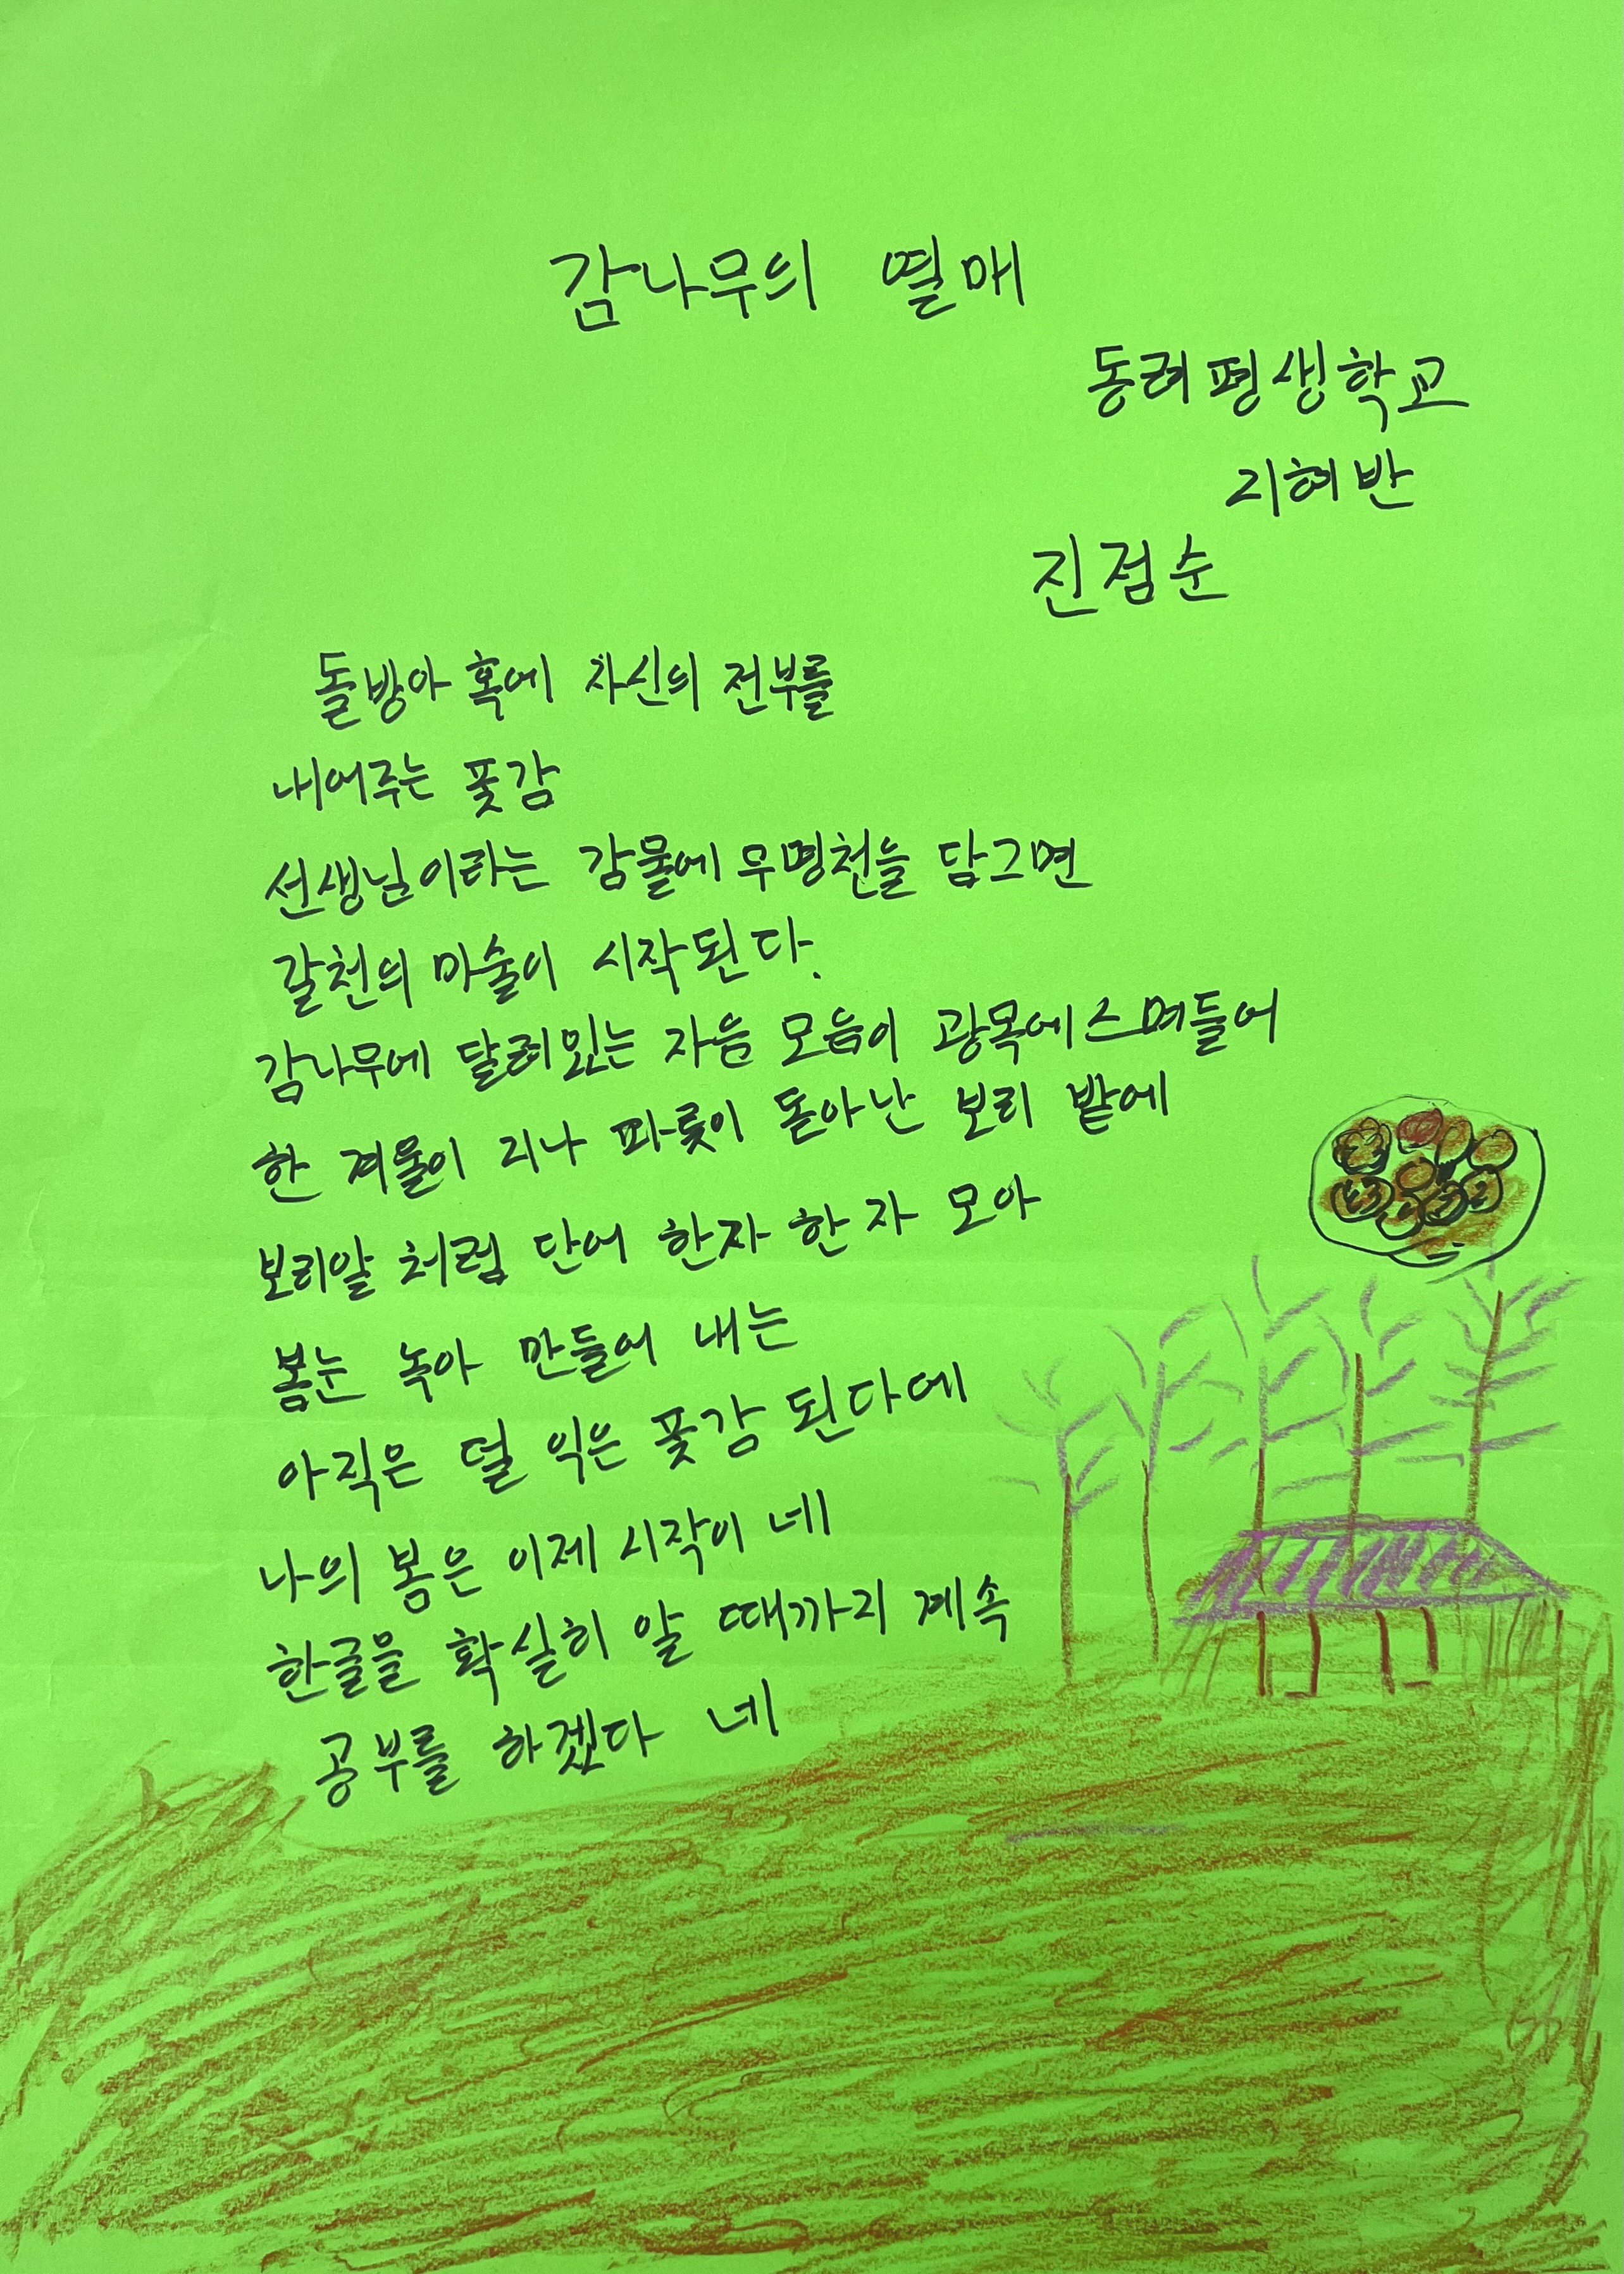 감나무의 열매
동려평생학교
지혜반
진점순
돌방아 혹에 자신의 전부를
내어주는 풋감
선생님이라는 감물에 무명천을 담그면
갈천의 마술이 시작된다.
감나무에 달려있는 자음 모음이 광목에 스며들어
한 겨울이 지나 파릇이 돋아난 보리 밭에
보리알 처럼 단어 한자 한자 모아
봄눈 녹아 만들어 내는
아직은 덜 익은 풋감 된다네
나의 봄은 이제 시작이 네
한글을 확실히 알 때까지 계속
공부를 하겠다 네